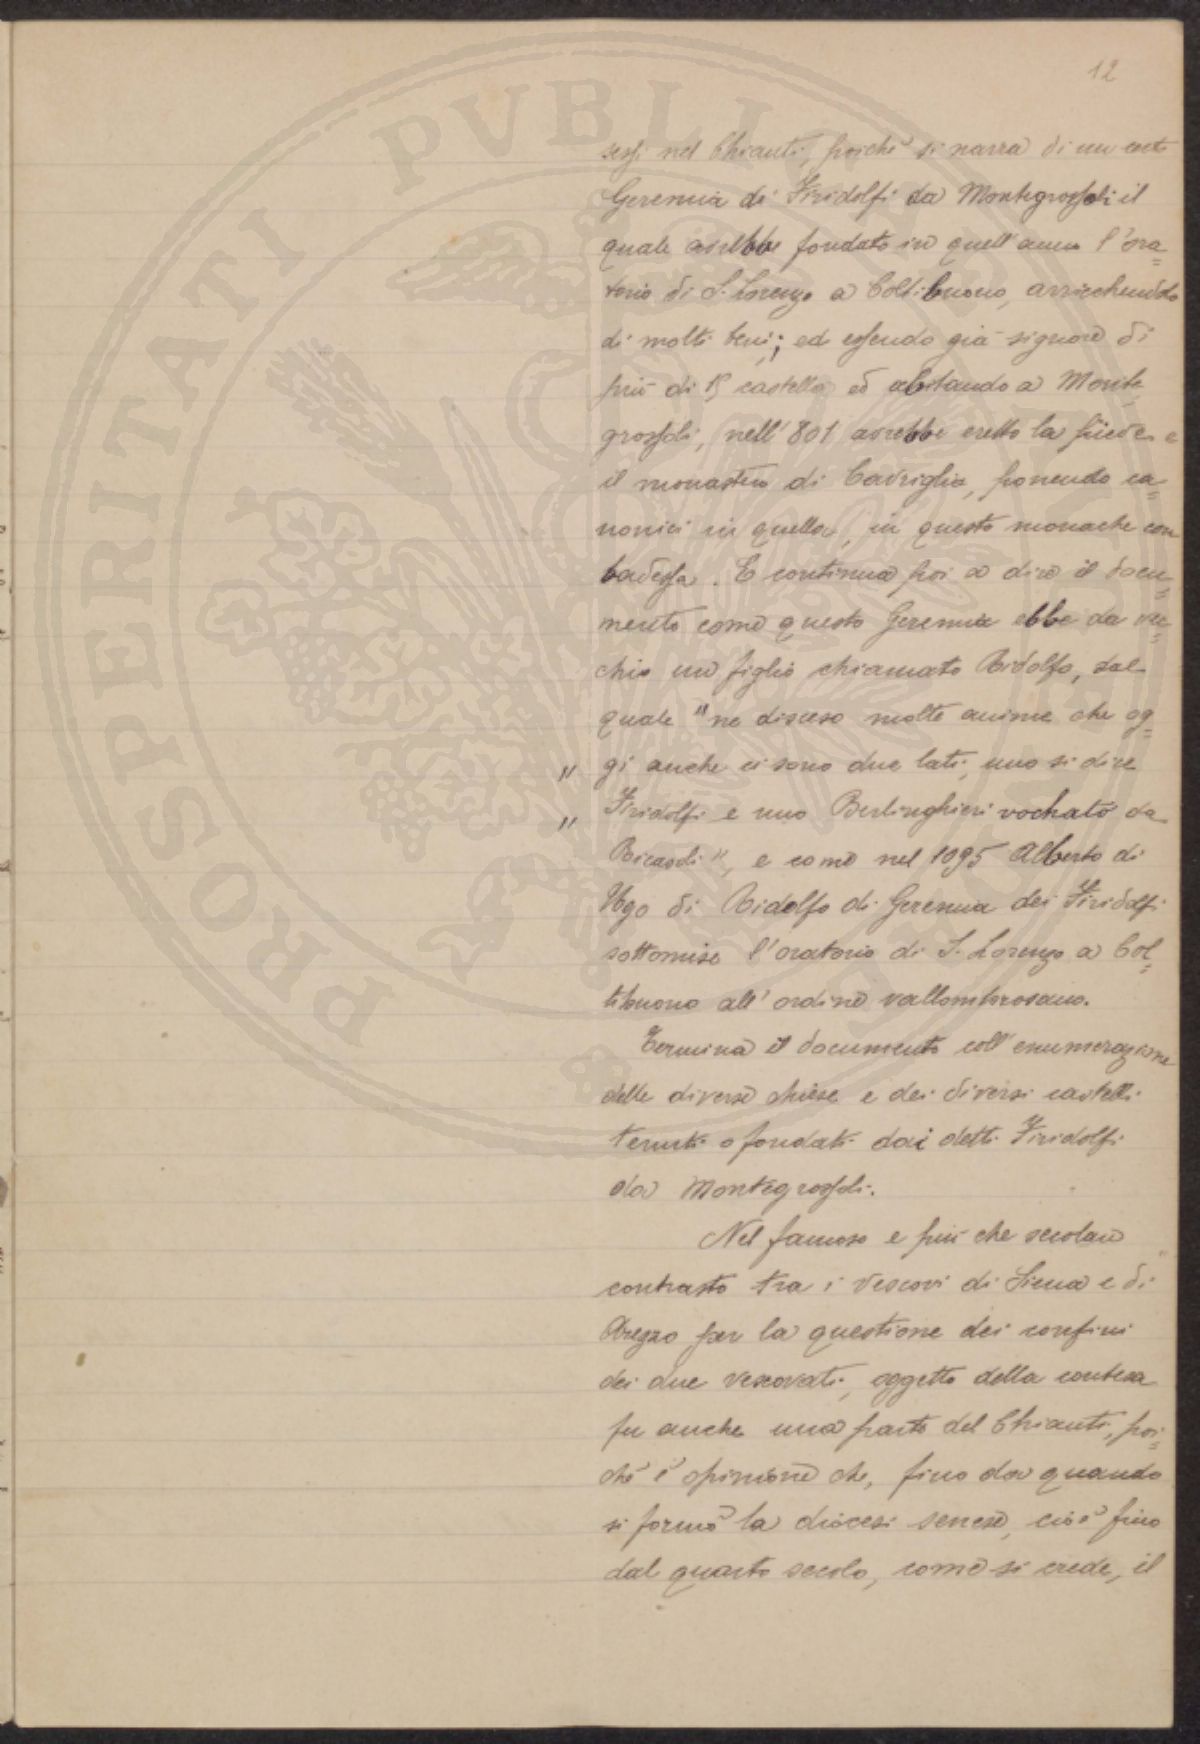 12
sessi nel Chianti, poichè si narra di un certo
Geremia di Firidolfi da Montegrossoli il
quale avrebbe fondato in quell'anno l'ora=
torio di S. Lorenzo a Coltibuono, arricchendolo
di molti beni; ed essendo già signore di
più di 15 castella ed abitando a Monte
grossoli, nell'801 avrebbe eretto la pieve e
il monastero di Cavriglia, ponendo ca=
nonici in quella, in questo monache con
badessa. E continua poi a dire il docu=
mento come questo Geremia ebbe da vec=
chio un figlio chiamato Ridolfo, dal
quale "ne disceso molte anime che og=
" gi anche ci sono due lati, uno si dice
" Firidolfi e uno Berlinghieri vochato da
Ricasoli", e come nel 1095 Alberto di
Ugo di Ridolfo di Geremia dei Firidolfi
sottomise l'oratorio di S. Lorenzo a Col=
tibuono all'ordine vallombrosano.
Termina il documento coll'enumerazione
delle diverse chiese e dei diversi castelli
tenuti o fondati dai detti Firidolfi
da Montegrossoli.
Nel famoso e più che secolare
contrasto tra i vescovi di Siena e di
Arezzo per la questione dei confini
dei due vescovati, oggetto della contesa
fu anche una parte del Chianti, poi=
chè è opinione che, fino da quando
si formò la diocesi senese, cioè fino
dal quarto secolo, come si crede, il
PROSPERITATI PVBLICAE